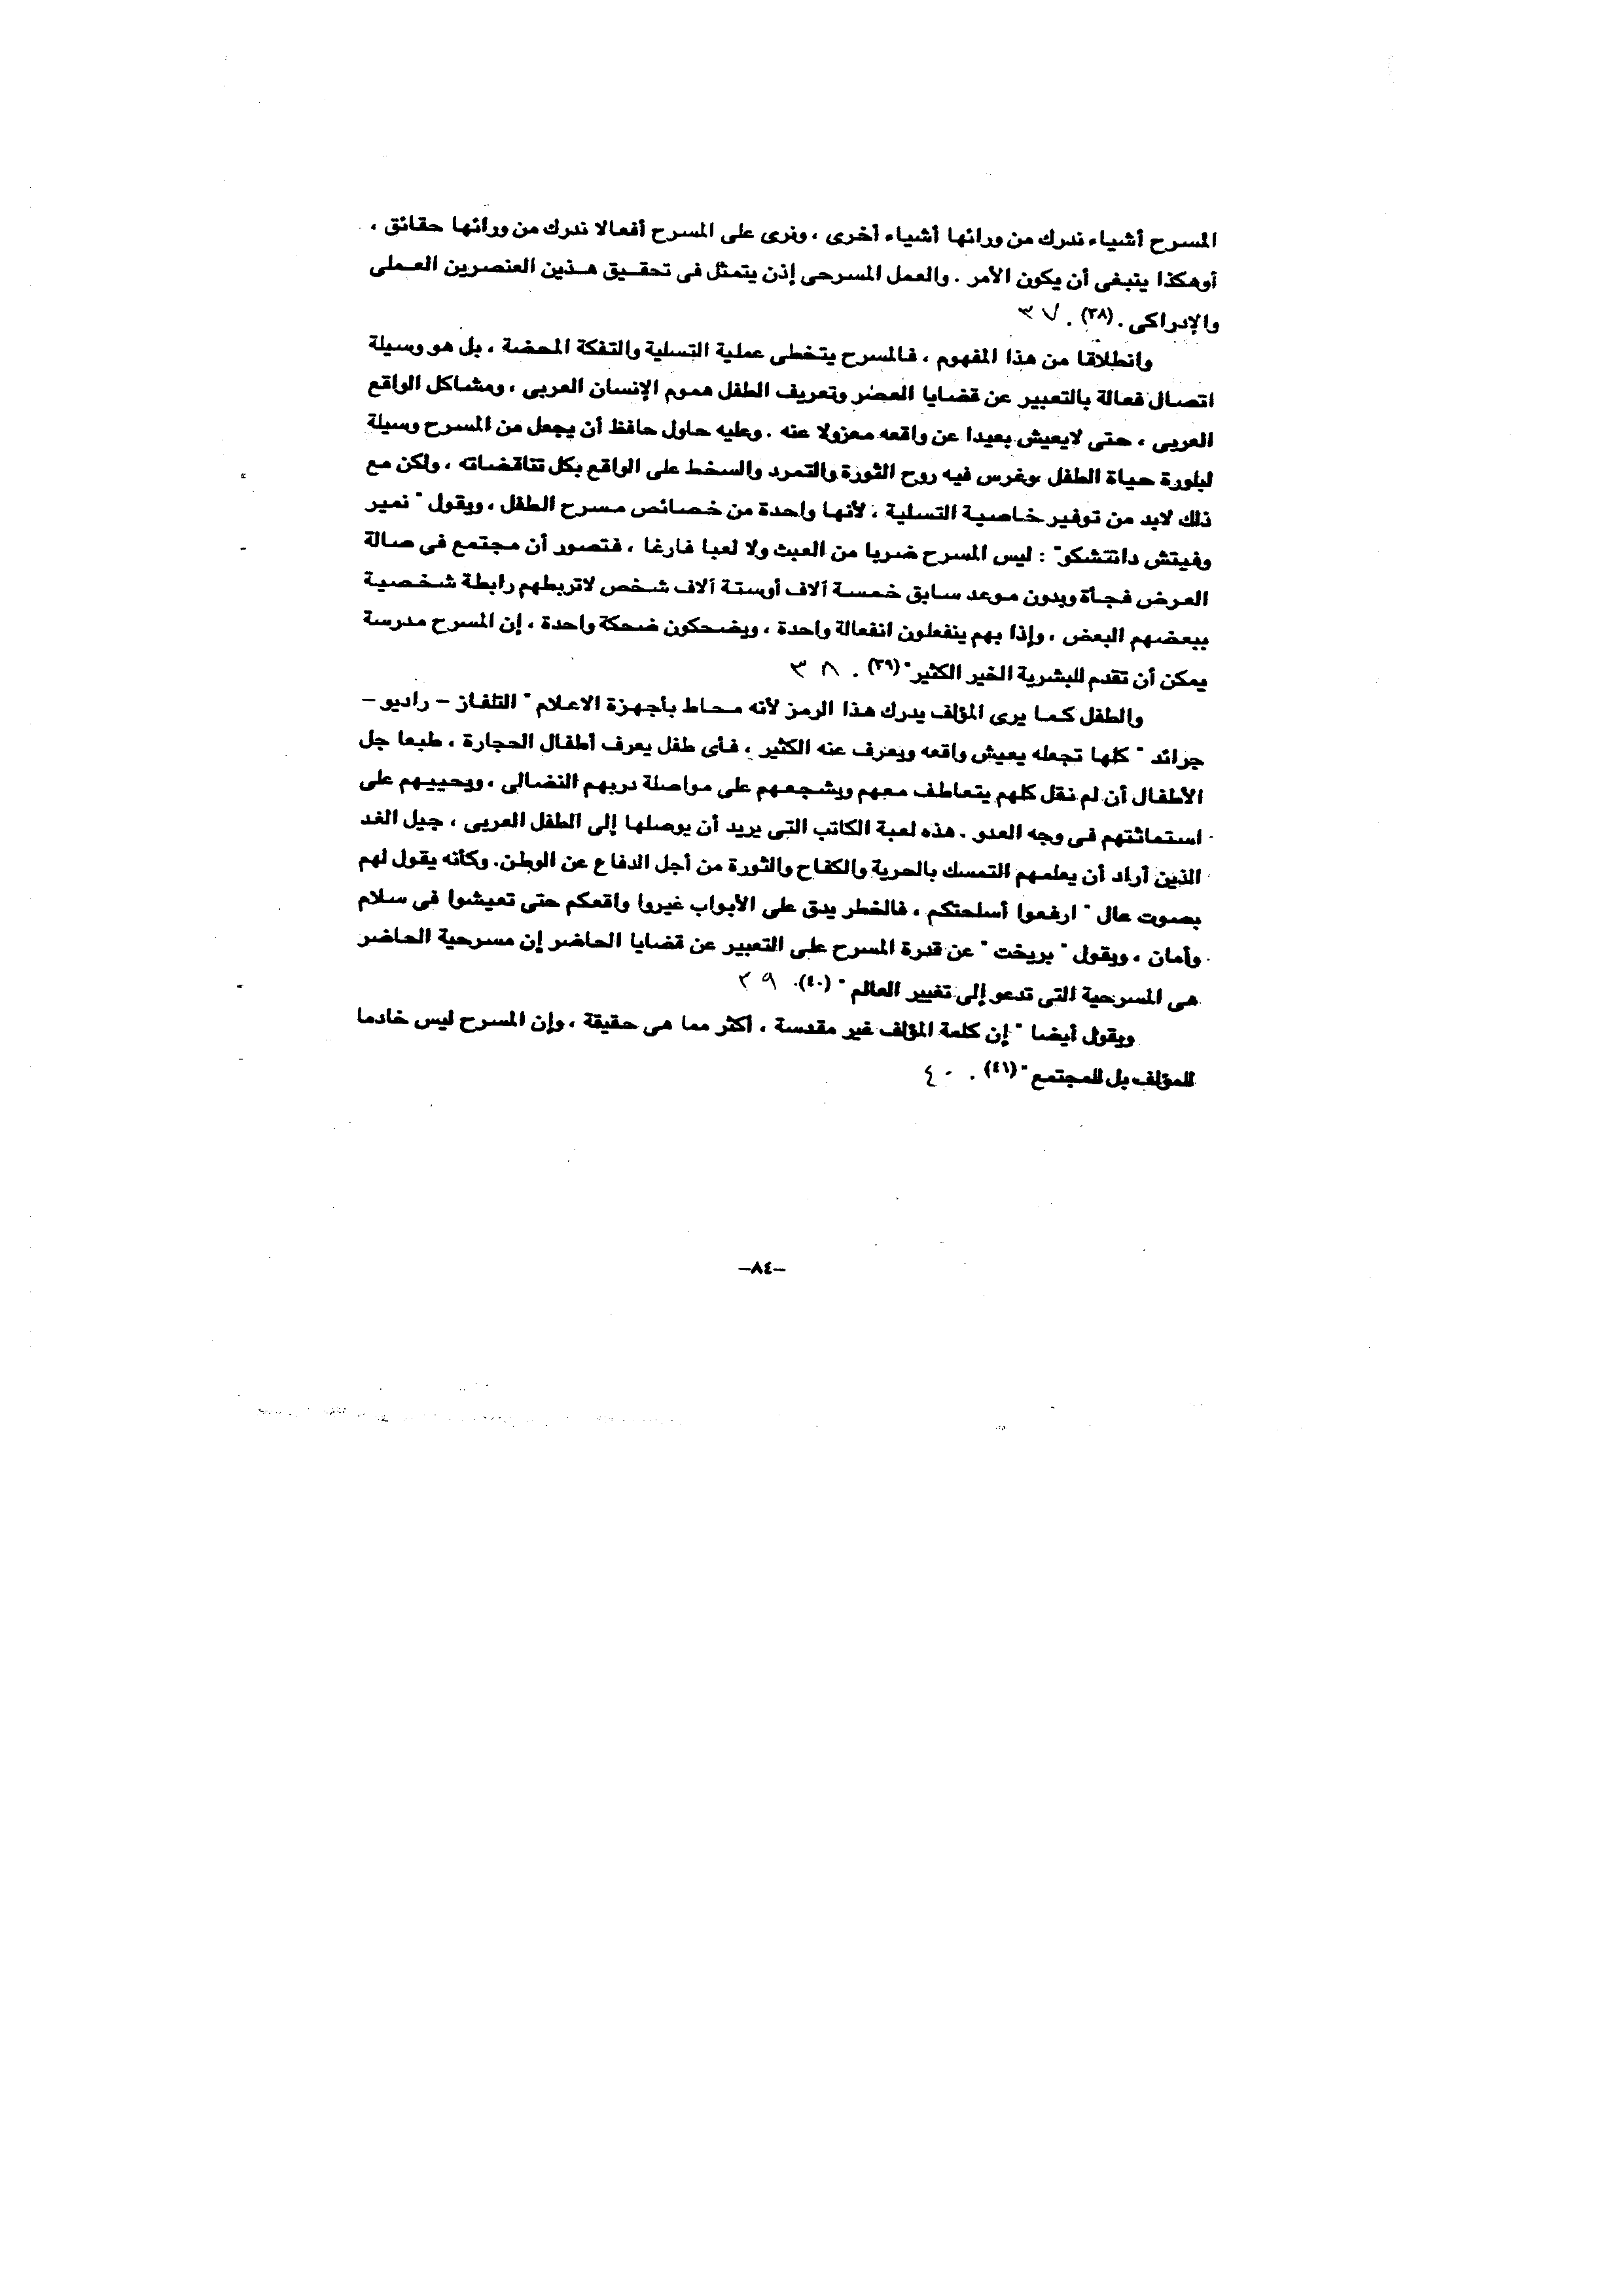 المسرح أشياء ندرك من ورائها أشياء أخرى ، ونرى على المسرح أفعالا ندرك من ورائها حقائق ،
أوهكذا ينبغى أن يكون الأمر . والعمل المسرحى إذن يتمثل فى تحقيق هذين العنصرين العملى
والإدراكى . (٣٨) . ٣٧
وانطلاقا من هذا المفهوم ، فالمسرح يتخطى عملية التسلية والتفكة المحضة ، بل هو وسيلة
اتصال فعالة بالتعبير عن قضايا العصر وتعريف الطفل هموم الإنسان العربى ، ومشاكل الواقع
العربى ، حتى لايعيش بعيدا عن واقعه معزولا عنه . وعليه حاول حافظ أن يجعل من المسرح وسيلة
لبلورة حياة الطفل وغرس فيه روح الثورة والتمرد والسخط على الواقع بكل تناقضاته ، ولكن مع
ذلك لابد من توفير خاصية التسلية ، لأنها واحدة من خصائص مسرح الطفل ، ويقول " نمير
وفيتش دانتشكو" : ليس المسرح ضربا من العبث ولا لعبا فارغا ، فتصور أن مجتمع فى صالة
العرض فجأة وبدون موعد سابق خمسة آلاف أوستة آلاف شخص لاتربطهم رابطة شخصية
ببعضهم البعض ، وإذا بهم ينفعلون انفعالة واحدة ، ويضحكون ضحكة واحدة ، إن المسرح مدرسة
يمكن أن تقدم للبشرية الخير الكثير" (٣٩) . ٣٨
والطفل كما يرى المؤلف يدرك هذا الرمز لأنه محاط بأجهزة الاعلام " التلفاز – راديو –
جرائد " كلها تجعله يعيش واقعه ويعرف عنه الكثير ، فأى طفل يعرف أطفال الحجارة ، طبعا جل
الأطفال أن لم نقل كلهم يتعاطف معهم ويشجعهم على مواصلة دربهم النضالى ، ويحييهم على
استماتتهم فى وجه العدو . هذه لعبة الكاتب التى يريد أن يوصلها إلى الطفل العربى ، جيل الغد
الذين أراد أن يعلمهم التمسك بالحرية والكفاح والثورة من أجل الدفاع عن الوطن. وكأنه يقول لهم
بصوت عال " ارفعوا أسلحتكم ، فالخطر يدق على الأبواب غيروا واقعكم حتى تعيشوا فى سلام
وأمان ، ويقول " بريخت " عن قدرة المسرح على التعبير عن قضايا الحاضر إن مسرحية الحاضر
هى المسرحية التى تدعو إلى تغيير العالم " (٤٠). ٣٩
ويقول أيضا " إن كلمة المؤلف غير مقدسة ، أكثر مما هى حقيقة ، وإن المسرح ليس خادما
للمؤلف بل للمجتمع " (٤١) . ٤٠
–٨٤–